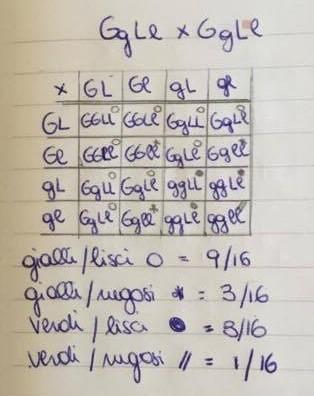 GgLl x GgLl
x GL Gl gL gl
GL GGLL GGLl GgLL GgLl
Gl GGLl GGll GgLl Ggll
gL GgLL GgLl ggLL ggLl
gl GgLl Ggll ggLl ggll
gialli/lisci O = 9/16
gialli/rugosi * = 3/16
verdi/lisci ● = 3/16
verdi/rugosi // = 1/16